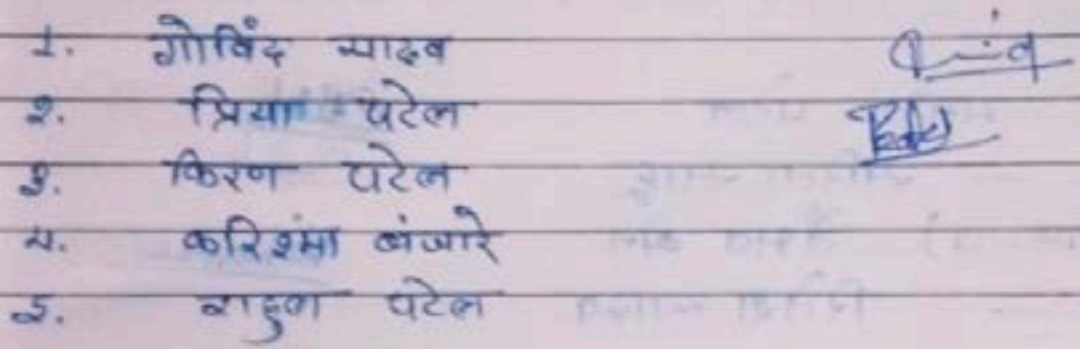 1. गोविंद यादव
२. प्रिया पटेल
३. किरण पटेल
४. करिश्मा बंजारे
५. राहुल पटेल